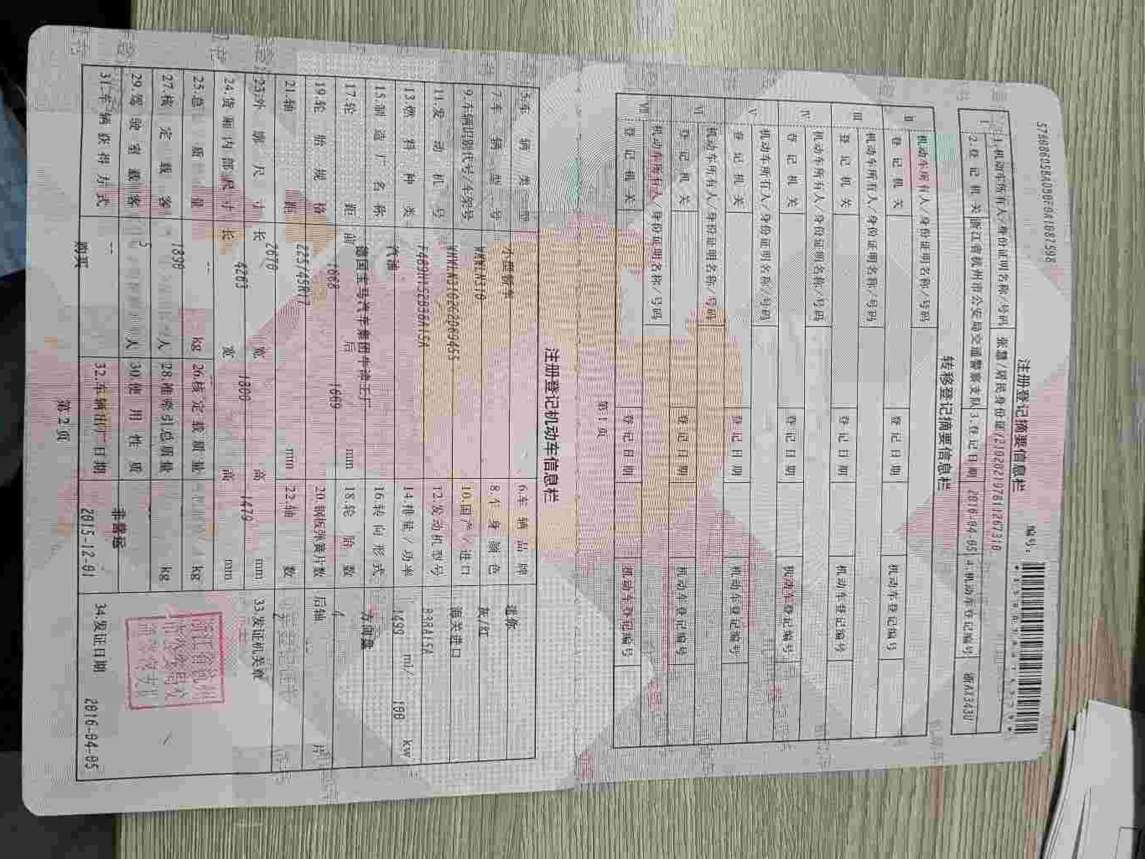 注册登记摘要信息栏
编号:
Ⅰ 1.机动车所有人/身份证明名称/号码 张慧/居民身份证/210202197811267310
2.登记机关 浙江省杭州市公安局交通警察支队 3.登记日期 2016-04-05 4.机动车登记编号
转移登记摘要信息栏
Ⅱ 机动车所有人/身份证明名称/号码
登记机关 登记日期 机动车登记编号
Ⅲ 机动车所有人/身份证明名称/号码
登记机关 登记日期 机动车登记编号
Ⅳ 机动车所有人/身份证明名称/号码
登记机关 登记日期 机动车登记编号
Ⅴ 机动车所有人/身份证明名称/号码
登记机关 登记日期 机动车登记编号
Ⅵ 机动车所有人/身份证明名称/号码
登记机关 登记日期 机动车登记编号
Ⅶ 机动车所有人/身份证明名称/号码
登记机关 登记日期 机动车登记编号
第1页
注册登记机动车信息栏
5.车辆类型 小型轿车 6.车辆品牌 迷你
7.车辆型号 8.车身颜色 灰/红
9.车辆识别代号/车架号 10.国产/进口 海关进口
11.发动机号 12.发动机型号 B38A15A
13.燃料种类 汽油 14.排量/功率 1499 ml/ 100 kw
15.制造厂名称 德国宝马汽车集团牛津工厂 16.转向形式 方向盘
17.轮距 前 后 1669 mm 18.轮胎数 4
19.轮胎规格 225/45R17 20.钢板弹簧片数 后轴 片
21.轴距 2670 mm 22.轴数 2
23.外廓尺寸 长 4263 宽 1800 高 1479 mm
33.发证机关章
24.货厢内部尺寸 长 宽 高 mm
25.总质量 1890 kg 26.核定载质量 kg
27.核定载客 5 人 28.准牵引总质量 kg
29.驾驶室载客 人 30.使用性质 非营运
31.车辆获得方式 购买 32.车辆出厂日期 2015-12-01 34.发证日期 2016-04-05
第2页